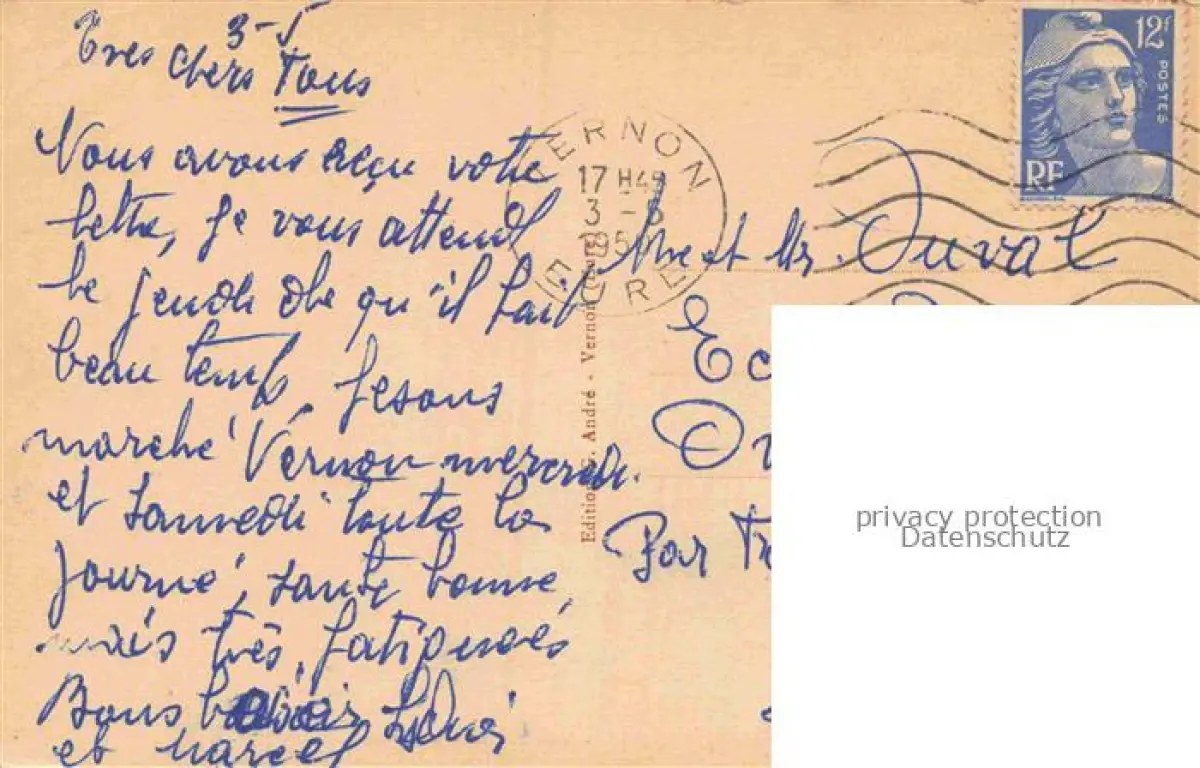 3-5
Tres chers Tous
Nous avons reçu votre
lettre, je vous attend
le jeudi des qu'il fait
beau temps, fesons
marché Vernon mercredi.
et samedi toute la
journé, santé bonne,
mais très fatigués
Bons baisers
et Marcel
VERNON
17 H45
3 - 5
195
EURE
Edition G. André - Vernon (Eure)
12F
POSTES
RF
Mme et Mr. Duval
Ec
Ou
Par Tr
privacy protection
Datenschutz